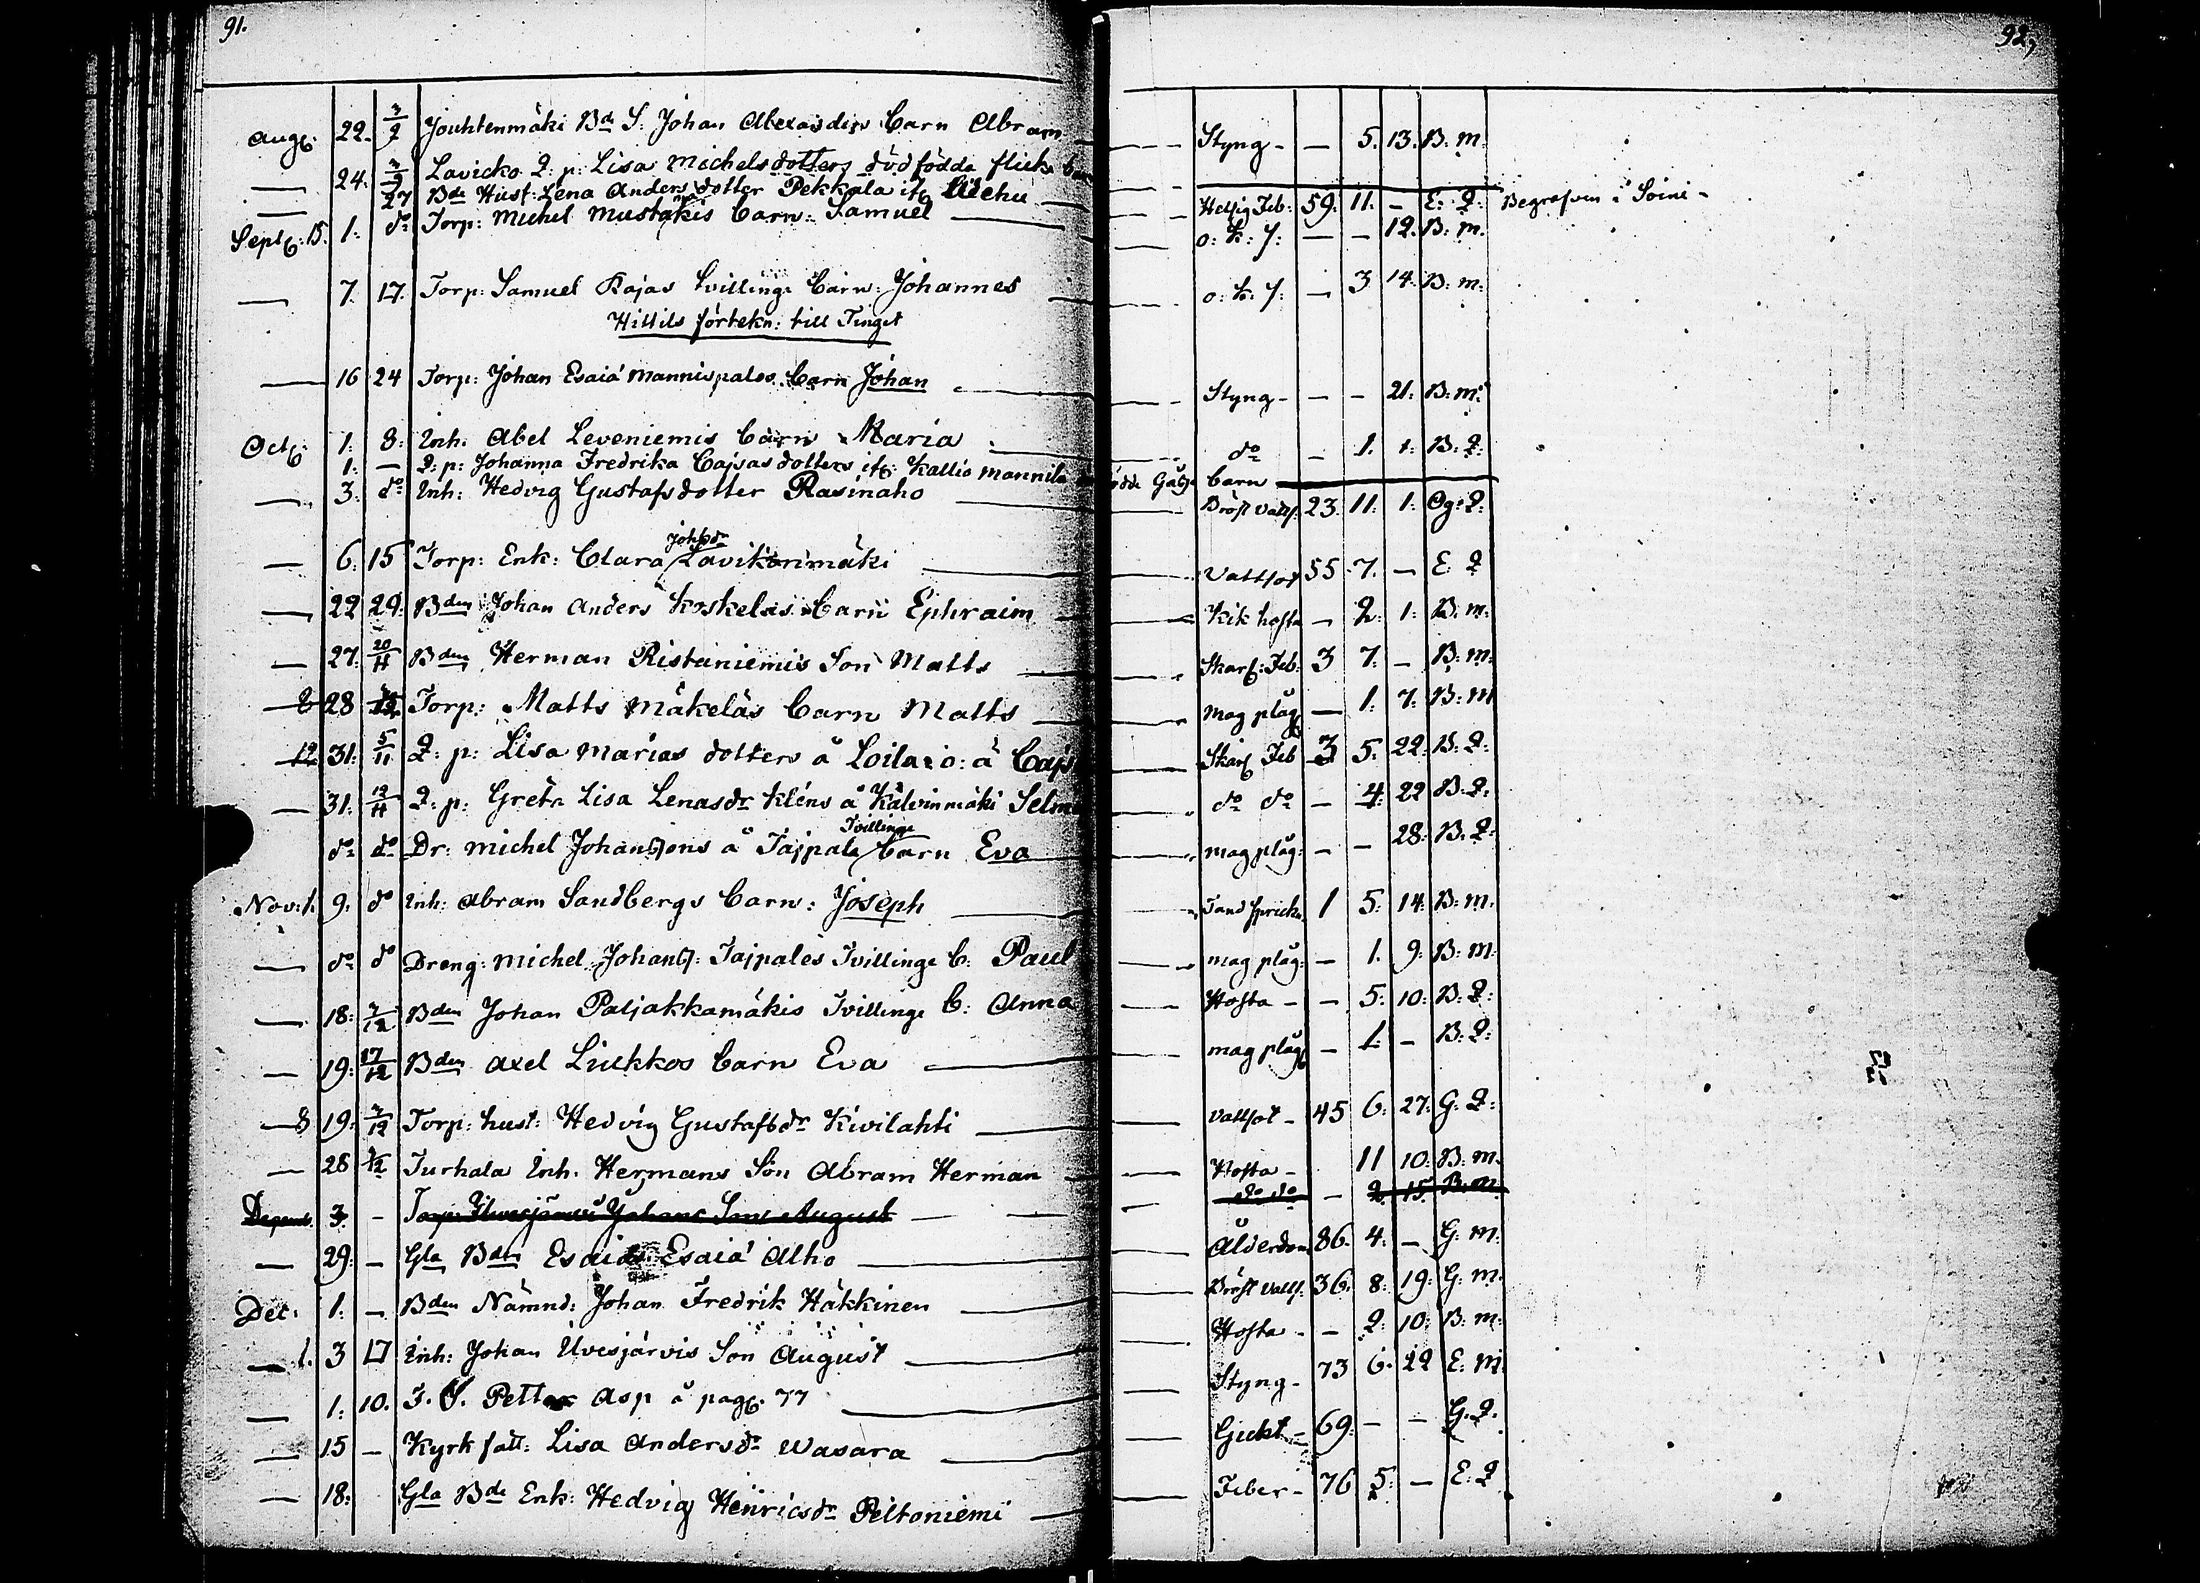 91.
92,
Aug: 22. 3/9 Jouhtenmäki Bd S: Johan Alexandrs Barn Abram — Styng - — 5. 13. B. m.
— 24. 3/9 Lavicko Q: p: Lisa Michelsdotters dödfödda flicke
— 27 Bde Hust: Lena Anders dotter Pekkala — Hetsig Feb: 59. 11. — E: Q: Begrafven i Soini -
Sept: 15. 1: do Torp: Michel Mustakis Barn: Samuel — o: k: s: — — 12. B: m.
— 7. 17. Torp: Samuel Rajas Tvillinge Barn: Johannes — o: k: s: — 3 14. B: m:
Hittils förtekn: till Tinget
— 16 24 Torp: Johan Esaiä Mannispalos Barn Johan — Styng - — - 21: B: m:
Oct: 1: 8: Inh: Abel Leveniemis Barn Maria — do - 1. 1: B: Q:
1: — Q: p: Johanna Fredrika Cajsasdotters Kallio Mannila födde Gåsse barn
— 3. do Inh: Hedvig Gustafsdotter Rasinaho — Bröst vatts: 23. 11. 1: Og: Q:
— 6. 15 Torp: Enk: Clara Johsdr Lavikarimäki — Vattsot 55 7. — E: Q
— 22 29: Bden Johan Anders Koskelas Barn Ephraim — Kik hosta — 2: 1: B: m:
— 27. 20/11 Bden Herman Ristaniemis Son Matts — Skarl: Feb: 3 7. — B: m:
— 28 Torp: Matts Mäkeläs Barn Matts — Mag plåg — 1: 7: B: m
12 31: 5/11 Q: p: Lisa Marias dotters å Loila o: ä Cajs — Skarl Feb 3 5. 22: B: Q:
— 31: 12/11 Q: p: Greta Lisa Lenasdr Kléns å Kälvinmäki Selm — do do — 4: 22 B: Q:
do do Dr: Michel Johanssons å Tajpale Tvillinge barn Eva — mag plåg: — — 28: B: Q:
Nov: 1. 9: do Inh: Abram Sandbergs Barn: Joseph — Tand sprickn 1 5: 14: B: m.
— do do Dreng: Michel Johanss: Tajpales Tvillinge B: Paul — mag plåg: — 1. 9: B: m:
— 18: 7/12 Bden Johan Paljakkamäkis Tvillinge B: Anna — Hosta - — 5: 10: B: Q:
— 19: 17/12 Bden Axel Liukkos Barn Eva — mag plåg — 1: — B: Q:
8 19: 7/12 Torp: hust: Hedvig Gustafsdr Kivilahti — vattsot - 45 6: 27: G: Q:
— 28 Turhala Inh: Hermans Son Abram Herman — Hosta - 11 10: B: m.
3 - Torp: Johans Sons August — do do - 2 15 B: m
— 29: — Gla Bden Esaiä Alho — Ålderdom 86. 4: — G: m:
Dec: 1: — Bden Nämnd: Johan Fredrik Häkkinen — Bröst vatts: 36: 8: 19: G: m.
— 1. 3 17 Inh: Johan Ulvesjärvis Son August — Hosta - — 2: 10: B: m:
— 1: 10. F. S. Petter Asp å pag: 77 — Styng - 73 6: 22 E: m:
— 15 — Kyrk fatt: Lisa Andersdr Wasara — Gickt - 69: — — G: Q:
— 18: Gla Bde Enk: Hedvig Henricsdr Peltoniemi — Feber - 76 5: — E: Q